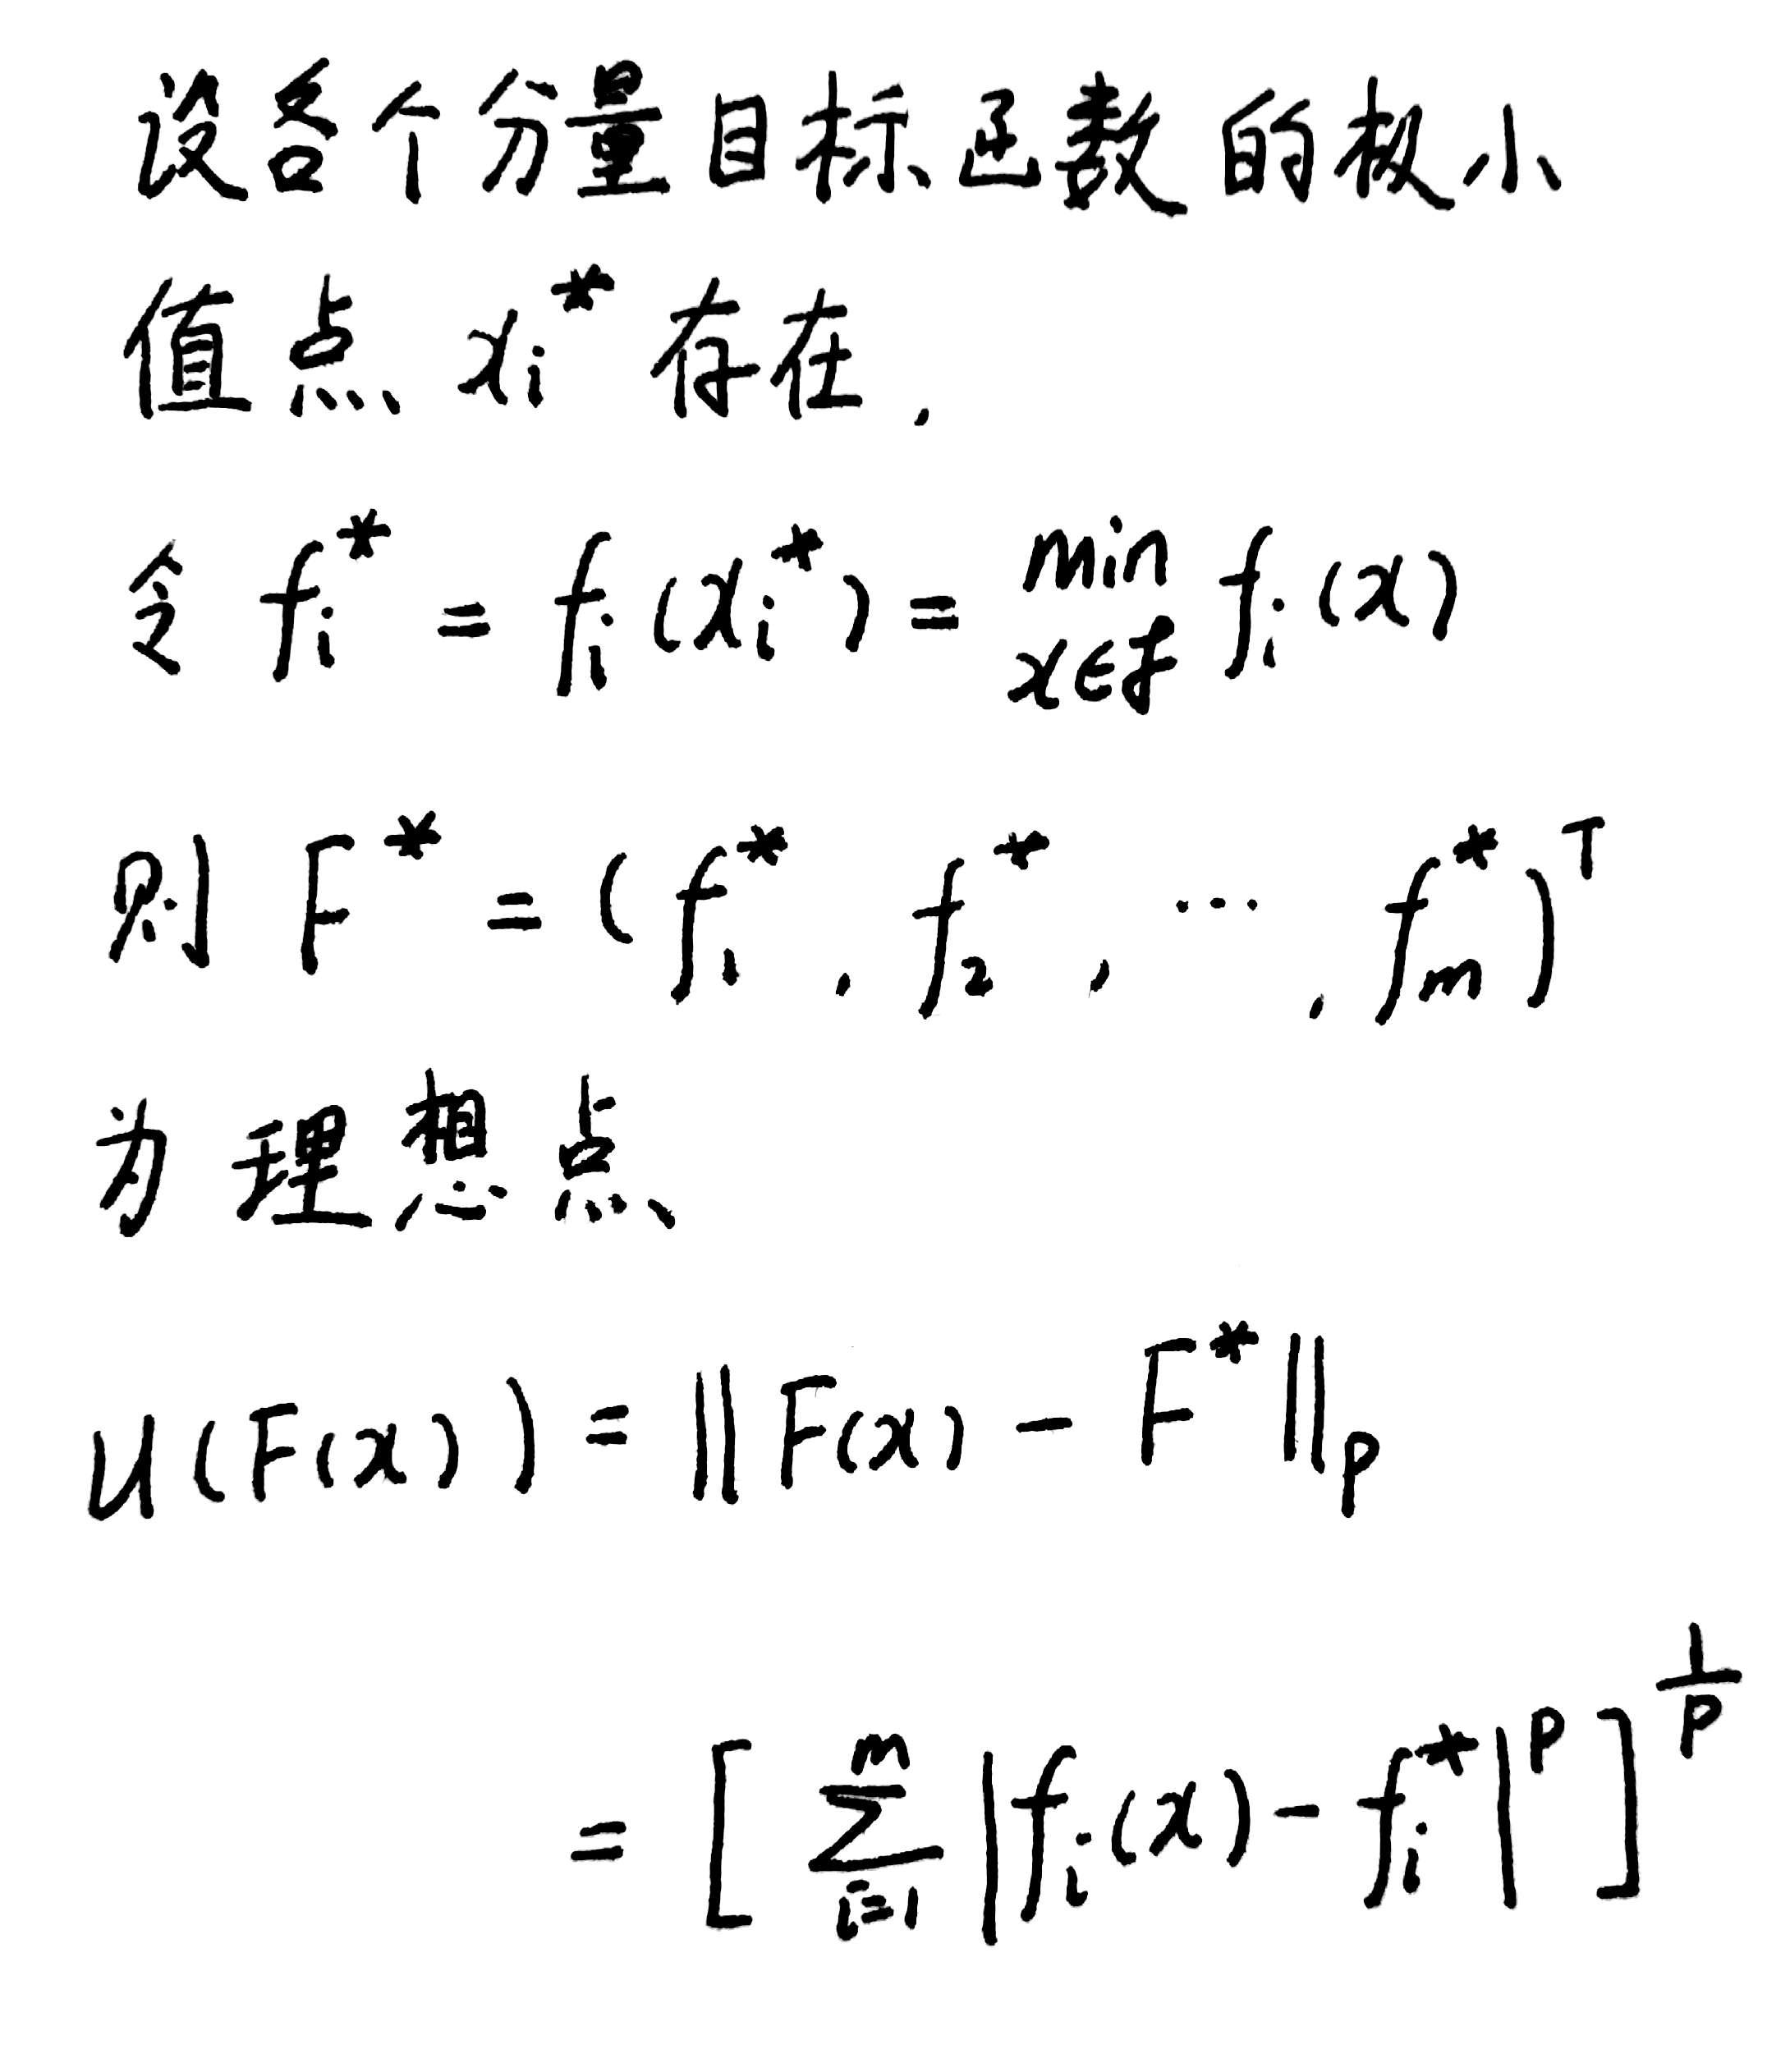 设各个分量目标函数的极小
值点 x_i^* 存在,
令 f_i^* = f_i(x_i^*) = min_{x∈f} f_i(x)
则 F^* = (f_1^*, f_2^*, ⋯, f_m^*)^T
为理想点
U(F(x)) = ||F(x) - F^*||_p
= [∑_{i=1}^m |f_i(x) - f_i^*|^p]^{1/p}